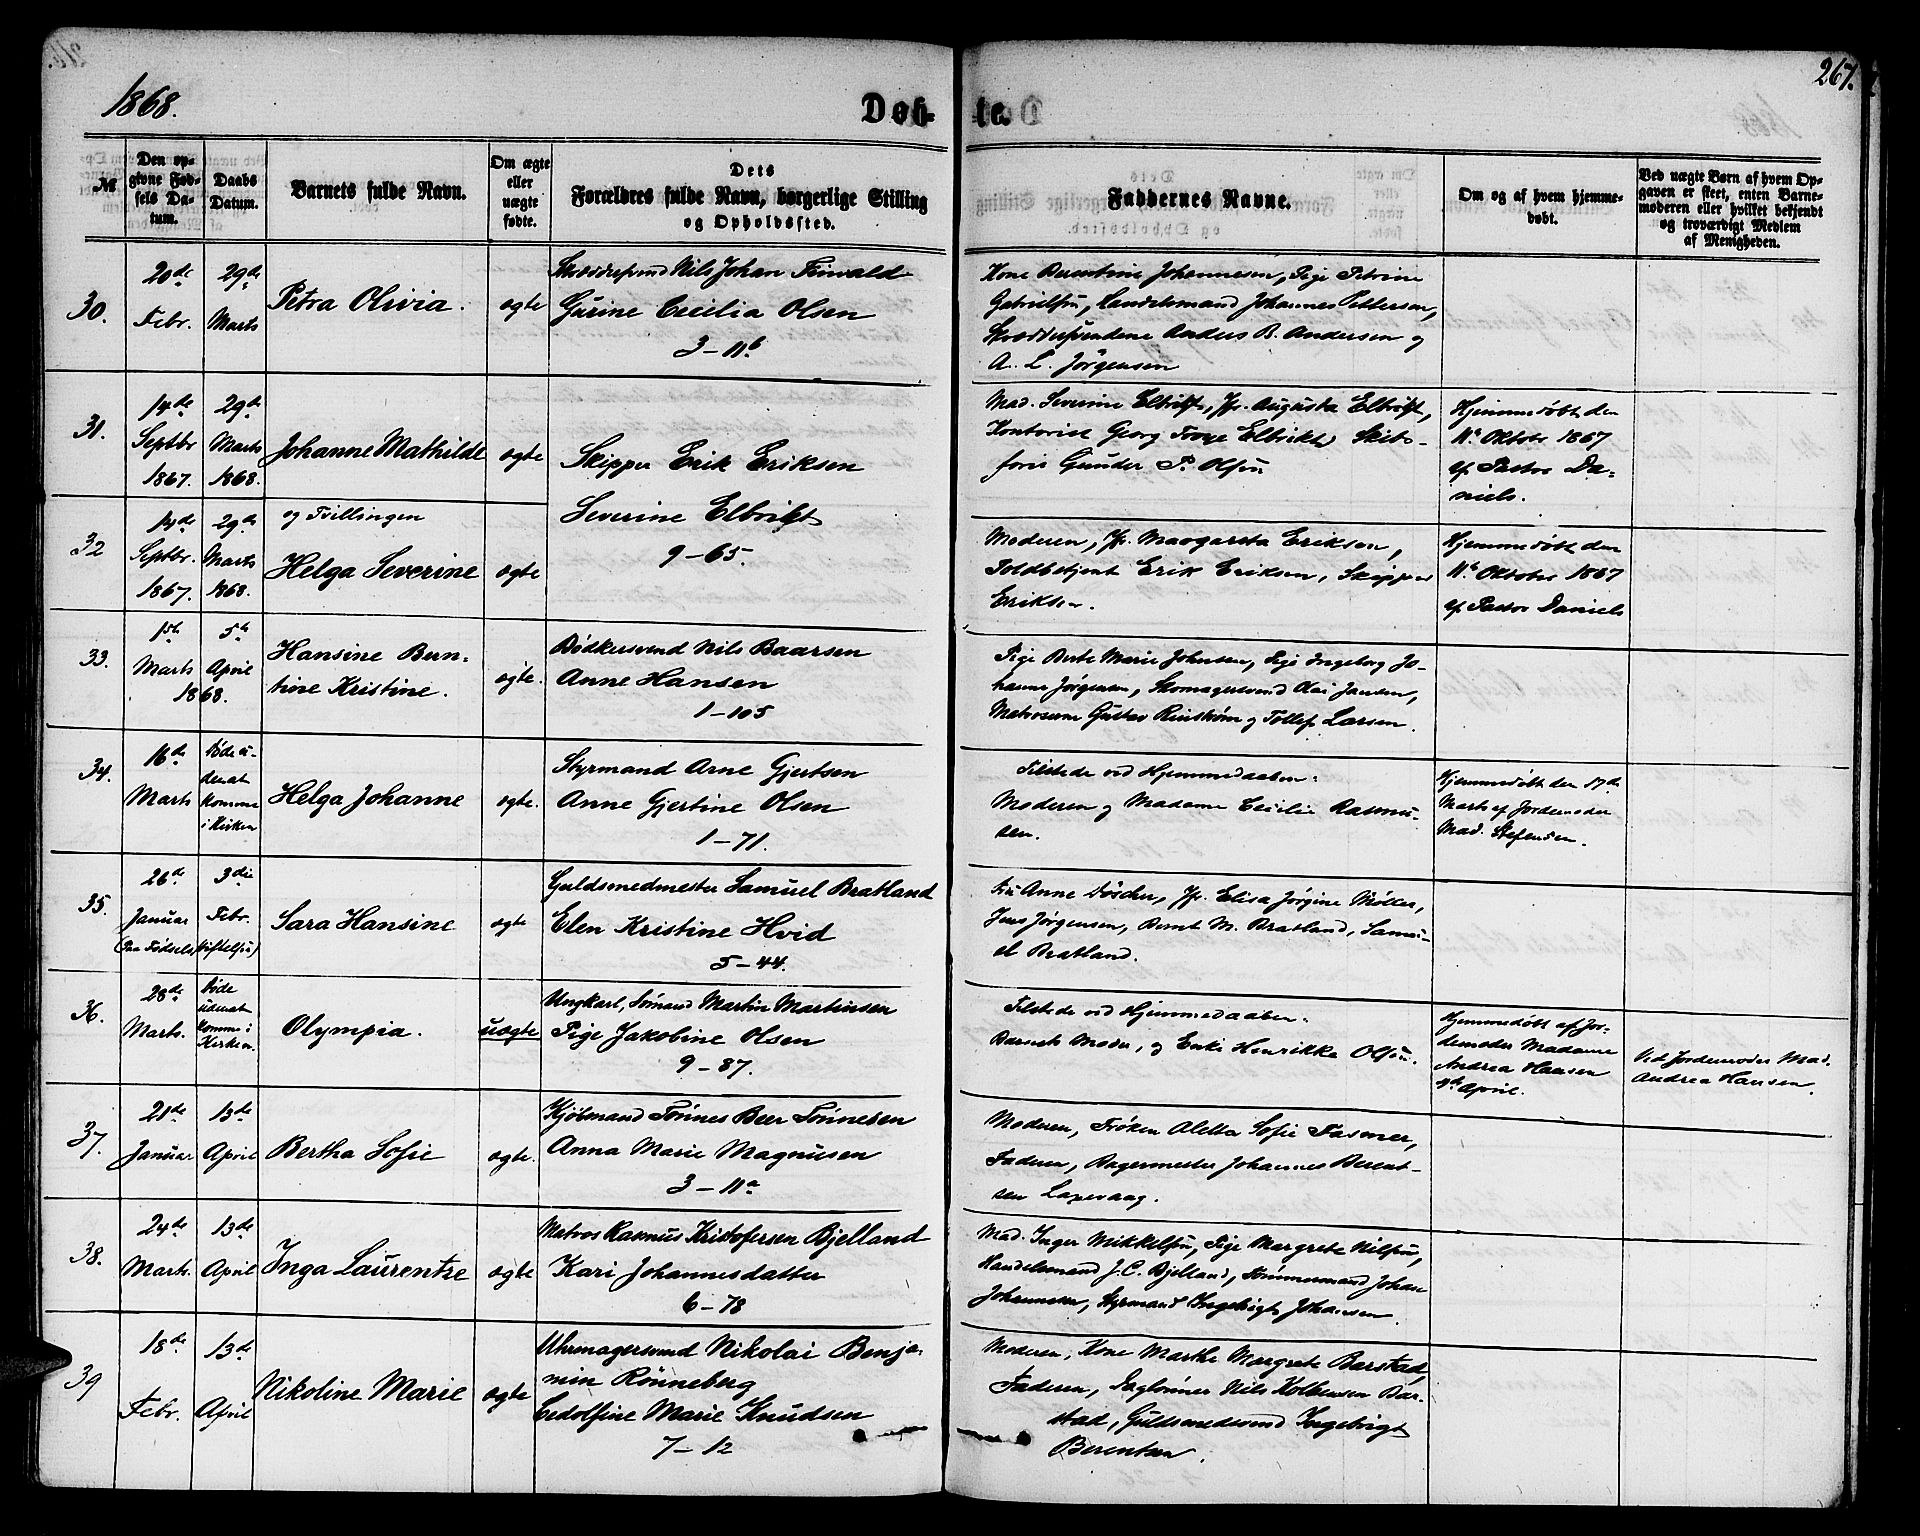 1868.
Døb-
te.
267.
№
Den op-
givne Fød-
sels Da-
tum.
Daabs
Datum.
Barnets fulde Navn.
Om ægte
eller
uægte
fødte.
Dets
Forældres fulde Navn, borgerlige Stilling
og Opholdssted.
Faddernes Navne.
Om og af hvem hjemme-
døbt.
Ved uægte Børn af hvem Op-
gaven er skeet, enten Barne-
moderen eller hvilket bekjendt
og troværdigt Medlem
af Menigheden.
30.
20de
Febr.
29de
Marts
Petra Olivia.
ægte
Skræddersvend Nils Johan
Gurine Cecilia Olsen
3-11b
Kone Berentine Johannesen, Pige Petrine
Gabrielsen, Handelsmand Johannes Pettersen,
Skræddersvendene Anders B. Andersen og
A. L. Jørgensen
31.
14de
Septbr
1867.
29de
Marts
1868.
Johanne Mathilde
ægte
Skipper Erik Eriksen
Severine Elbrikt
9-65.
Mad. Severine Elbrikt, Jfr. Augusta Elbrikt,
Kontorist Georg Elbrikt, Skibs-
fører Gunder P. Olsen
Hjemmedøbt den
11te Oktobr 1867
af Pastor Da-
niels.
32
14de
Septbr.
1867.
29de
Marts
1868.
og Tvillingen
Helga Severine
ægte
Moderen, Jfr. Margareta Eriksen,
Toldbetjent Erik Eriksen, Skipper
Eriksen.
Hjemmedøbt den
11te Oktobre 1867
af Pastor Daniels
33.
15de
Marts
5te
April
1868.
Hansine Bern-
tine Kristine.
ægte.
Bødkersvend Nils Baarsen
Anne Hansen
1-105
Pige Berte Marie Johnsen, Pige Ingeborg Jo-
hanne Jørgensen, Skomagersvend Olai Jansen,
Matroserne Gustav og Tollef Larsen.
34.
16de
Marts
Døde u-
den at
komme
i Kirken
Helga Johanne
ægte.
Styrmand Arne Gjertsen
Anne Gjertine Olsen
1-71.
Tilstede ved Hjemmedaaben:
Moderen og Madame Cecilie Rasmu-
sen.
Hjemmedøbt den 17de
Marts af Jordemoder
Mad. Stefensen.
35.
26de
Januar
3die
Febr.
Sara Hansine
ægte
Guldsmedmester Samuel Bratland
Elen Kristine Hvid
5-44.
Fru Anne Døscher, Jfr. Elisa Jørgine Møller,
Jens Jørgensen, Bernt M. Bratland, Samu-
el Bratland.
36.
28de
Marts.
Døde
uden at
komme i
Kirken.
Olympia.
uægte
Ungkarl, Sømand Martin Martinsen
Pige Jakobine Olsen
9-87.
Tilstede ved Hjemmedaaben:
Barnets Moder, og Enke Henrikke Olsen.
Hjemmedøbt af Jor-
demoder Madame
Andrea Hansen
April.
Ved Jordemoder Mad.
Andrea Hansen.
37.
21de
Januar
13de
April
Bertha Sofie
ægte.
Kjøbmand Tønnes Beer Tønnesen
Anna Marie Magnusen
3-11a
Moderen, Frøken Aletta Sofie Fasmer,
Faderen, Bagermester Johannes Berent-
sen Laxevaag.
38.
24de
Marts.
13de
April
Inga Laurentze
ægte
Matros Rasmus Kristofersen Bjelland
Kari Johannesdatter
6-78
Mad. Inger Mikkelsen, Pige Margrete Nilsen,
Handelsmand J. C. Bjelland, Tømmermand Johan
Johannesen, Styrmand Ingebrigt Johansen.
39
18de
Febr.
13de
April
Nikoline Marie
ægte
Uhrmagersvend Nikolai Benja-
min Rönneberg
Cedolfine Marie Knudsen
7-12
Moderen, Kone Marthe Margrete Barstad,
Faderen, Dagløner Nils Kolbensen Bar-
stad, Guldsmedsvend Ingebrigt
Berentsen.